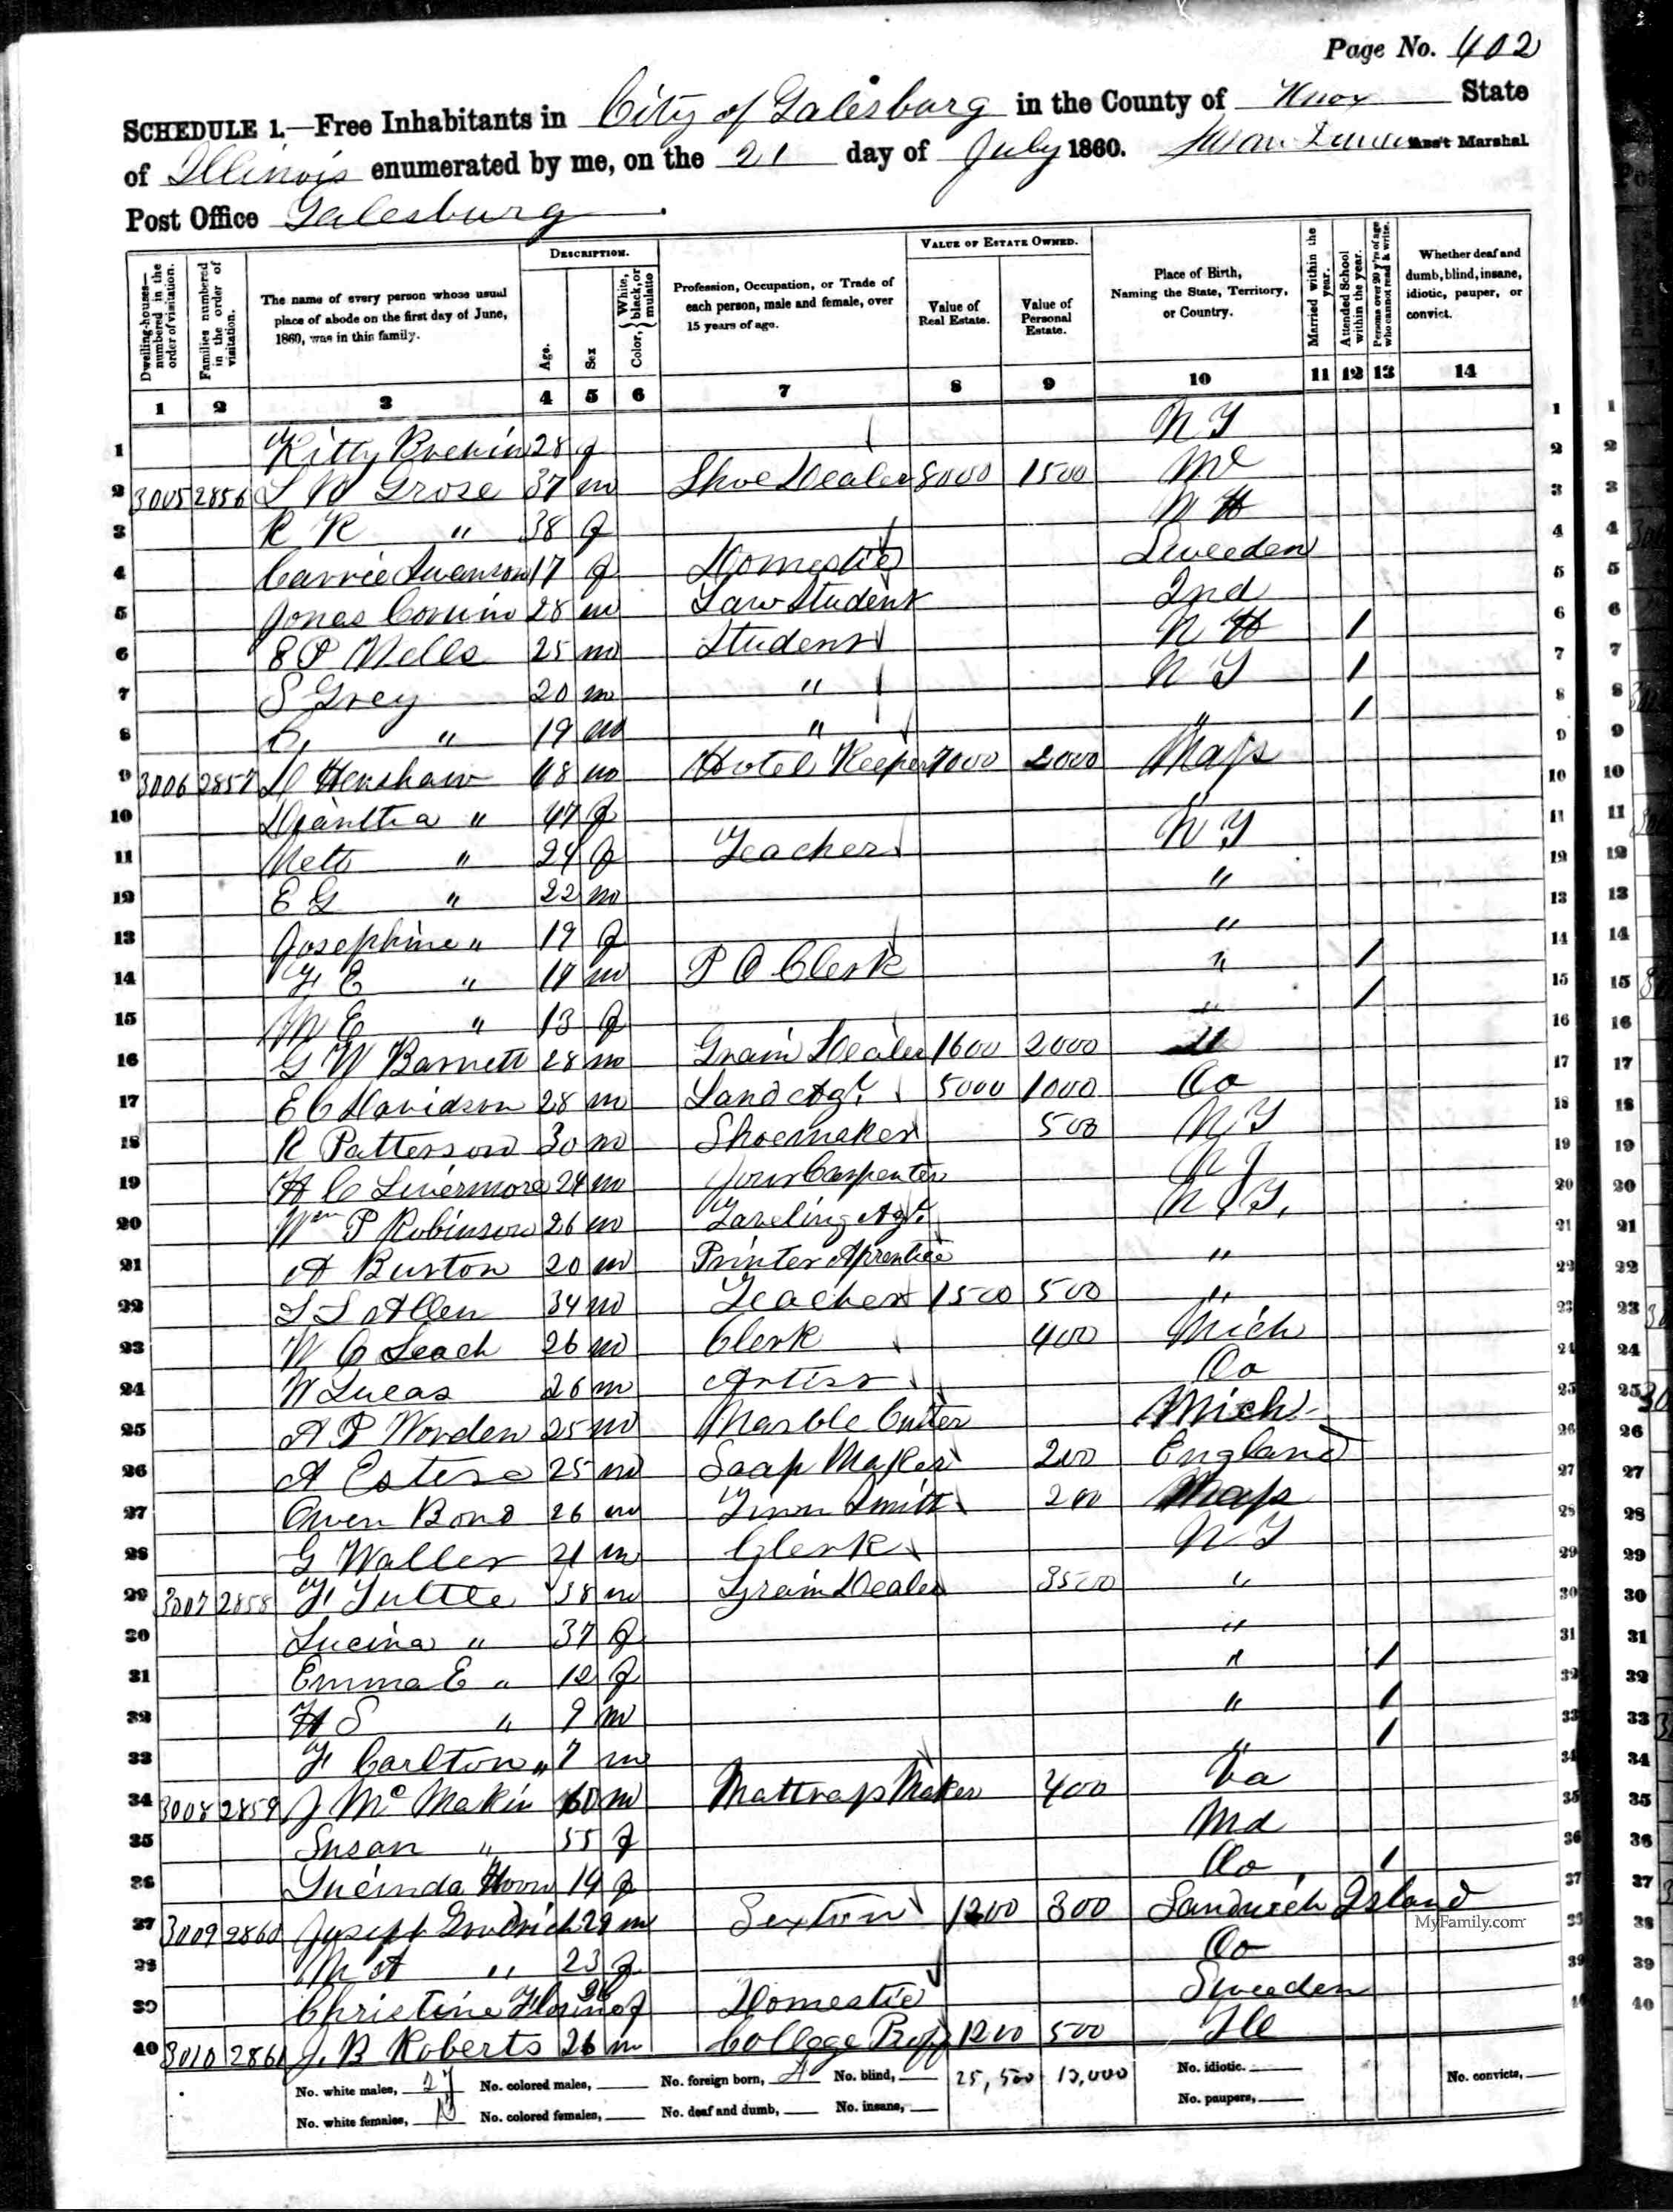 Page No. 402
SCHEDULE 1.—Free Inhabitants in City of Galesburg in the County of Knox State
of Illinois enumerated by me, on the 21 day of July 1860. Ass't Marshal
Post Office Galesburg
Dwelling-houses—numbered in the order of visitation.
Families numbered in the order of visitation.
The name of every person whose usual place of abode on the first day of June, 1860, was in this family.
DESCRIPTION.
Age.
Sex
Color, White, black, or mulatto
Profession, Occupation, or Trade of each person, male and female, over 15 years of age.
VALUE OF ESTATE OWNED.
Value of Real Estate.
Value of Personal Estate.
Place of Birth, Naming the State, Territory, or Country.
Married within the year.
Attended School within the year.
Persons over 20 y'rs of age who cannot read & write.
Whether deaf and dumb, blind, insane, idiotic, pauper, or convict.
1 2 3 4 5 6 7 8 9 10 11 12 13 14
1 Kitty 28 f N Y 1
2 3005 2856 Grose 37 m Shoe Dealer 8000 1500 Me 2
3 R R " 38 f N H 3
4 Carrie Swanson 17 f Domestic Sweeden 4
5 Jonas 28 m Law Student Ind 5
6 E P 25 m Student N H 1 6
7 S Grey 20 m " N Y 1 7
8 C, " 19 m " " 1 8
9 3006 2857 D Henshaw 48 m Hotel Keeper 7000 2000 Mass 9
10 Diantha " 47 f 10
11 Nett " 24 f Teacher N Y 11
12 E G " 22 m " 12
13 Josephine " 19 f " 13
14 F E " 17 m P O Clerk " 1 14
15 M E " 13 f " 1 15
16 G W Barnett 28 m Grain Dealer 1600 2000 16
17 E C Davidson 28 m Land Agt. 5000 1000 Oo 17
18 R Patterson 30 m Shoemaker 500 N Y 18
19 H C Livermore 24 m Jour Carpenter N J 19
20 Wm P Robinson 26 m Traveling Agt. N Y, 20
21 A Burton 20 m Printer Aprentice " 21
22 S S Allen 34 m Teacher 1500 500 " 22
23 W C Leach 26 m Clerk 400 Mich 23
24 W Lucas 26 m Artist Oo 24
25 A P Worden 25 m Marble Cutter Mich 25
26 A 25 m Soap Maker 200 England 26
27 Owen Bond 26 m Tinn Smith 200 Mass 27
28 G Waller 21 m Clerk N Y 28
29 3007 2858 F Tuttle 38 m Grain Dealer 3500 " 29
30 Lucina " 37 f " 30
31 Emma E " 12 f " 1 31
32 H S " 9 m " 1 32
33 F Carlton " 7 m " 1 33
34 3008 2859 J Mc Makin 60 m Mattrass Maker 400 Va 34
35 Susan " 55 f Md 35
36 Lucinda 19 f Oo 1 36
37 3009 2860 Joseph Goodrich 29 m Sexton 1200 300 Sandwich Island 37
MyFamily.com
38 M A " 23 f Oo 38
39 Christine f Domestic Sweeden 39
40 3010 2861 J. B Roberts 26 m College Proff 1200 500 Ill 40
No. white males, 27 No. colored males, No. foreign born, 4 No. blind, 25,500 12,000 No. idiotic. No. convicts,
No. white females, 13 No. colored females, No. deaf and dumb, No. insane, No. paupers,